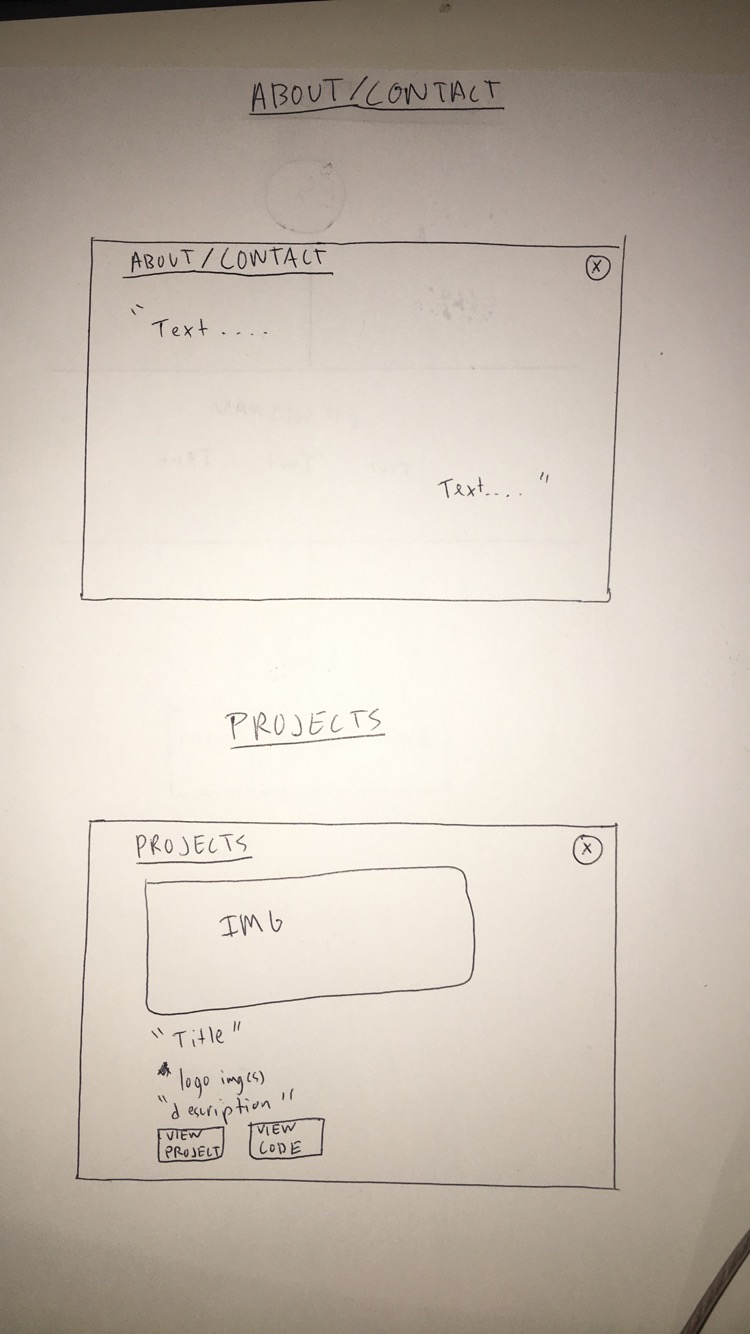 ABOUT/CONTACT
ABOUT/CONTACT
X
" Text ....
Text.... "
PROJECTS
PROJECTS
X
IMG
"Title"
logo img(s)
"description"
VIEW PROJECT
VIEW CODE